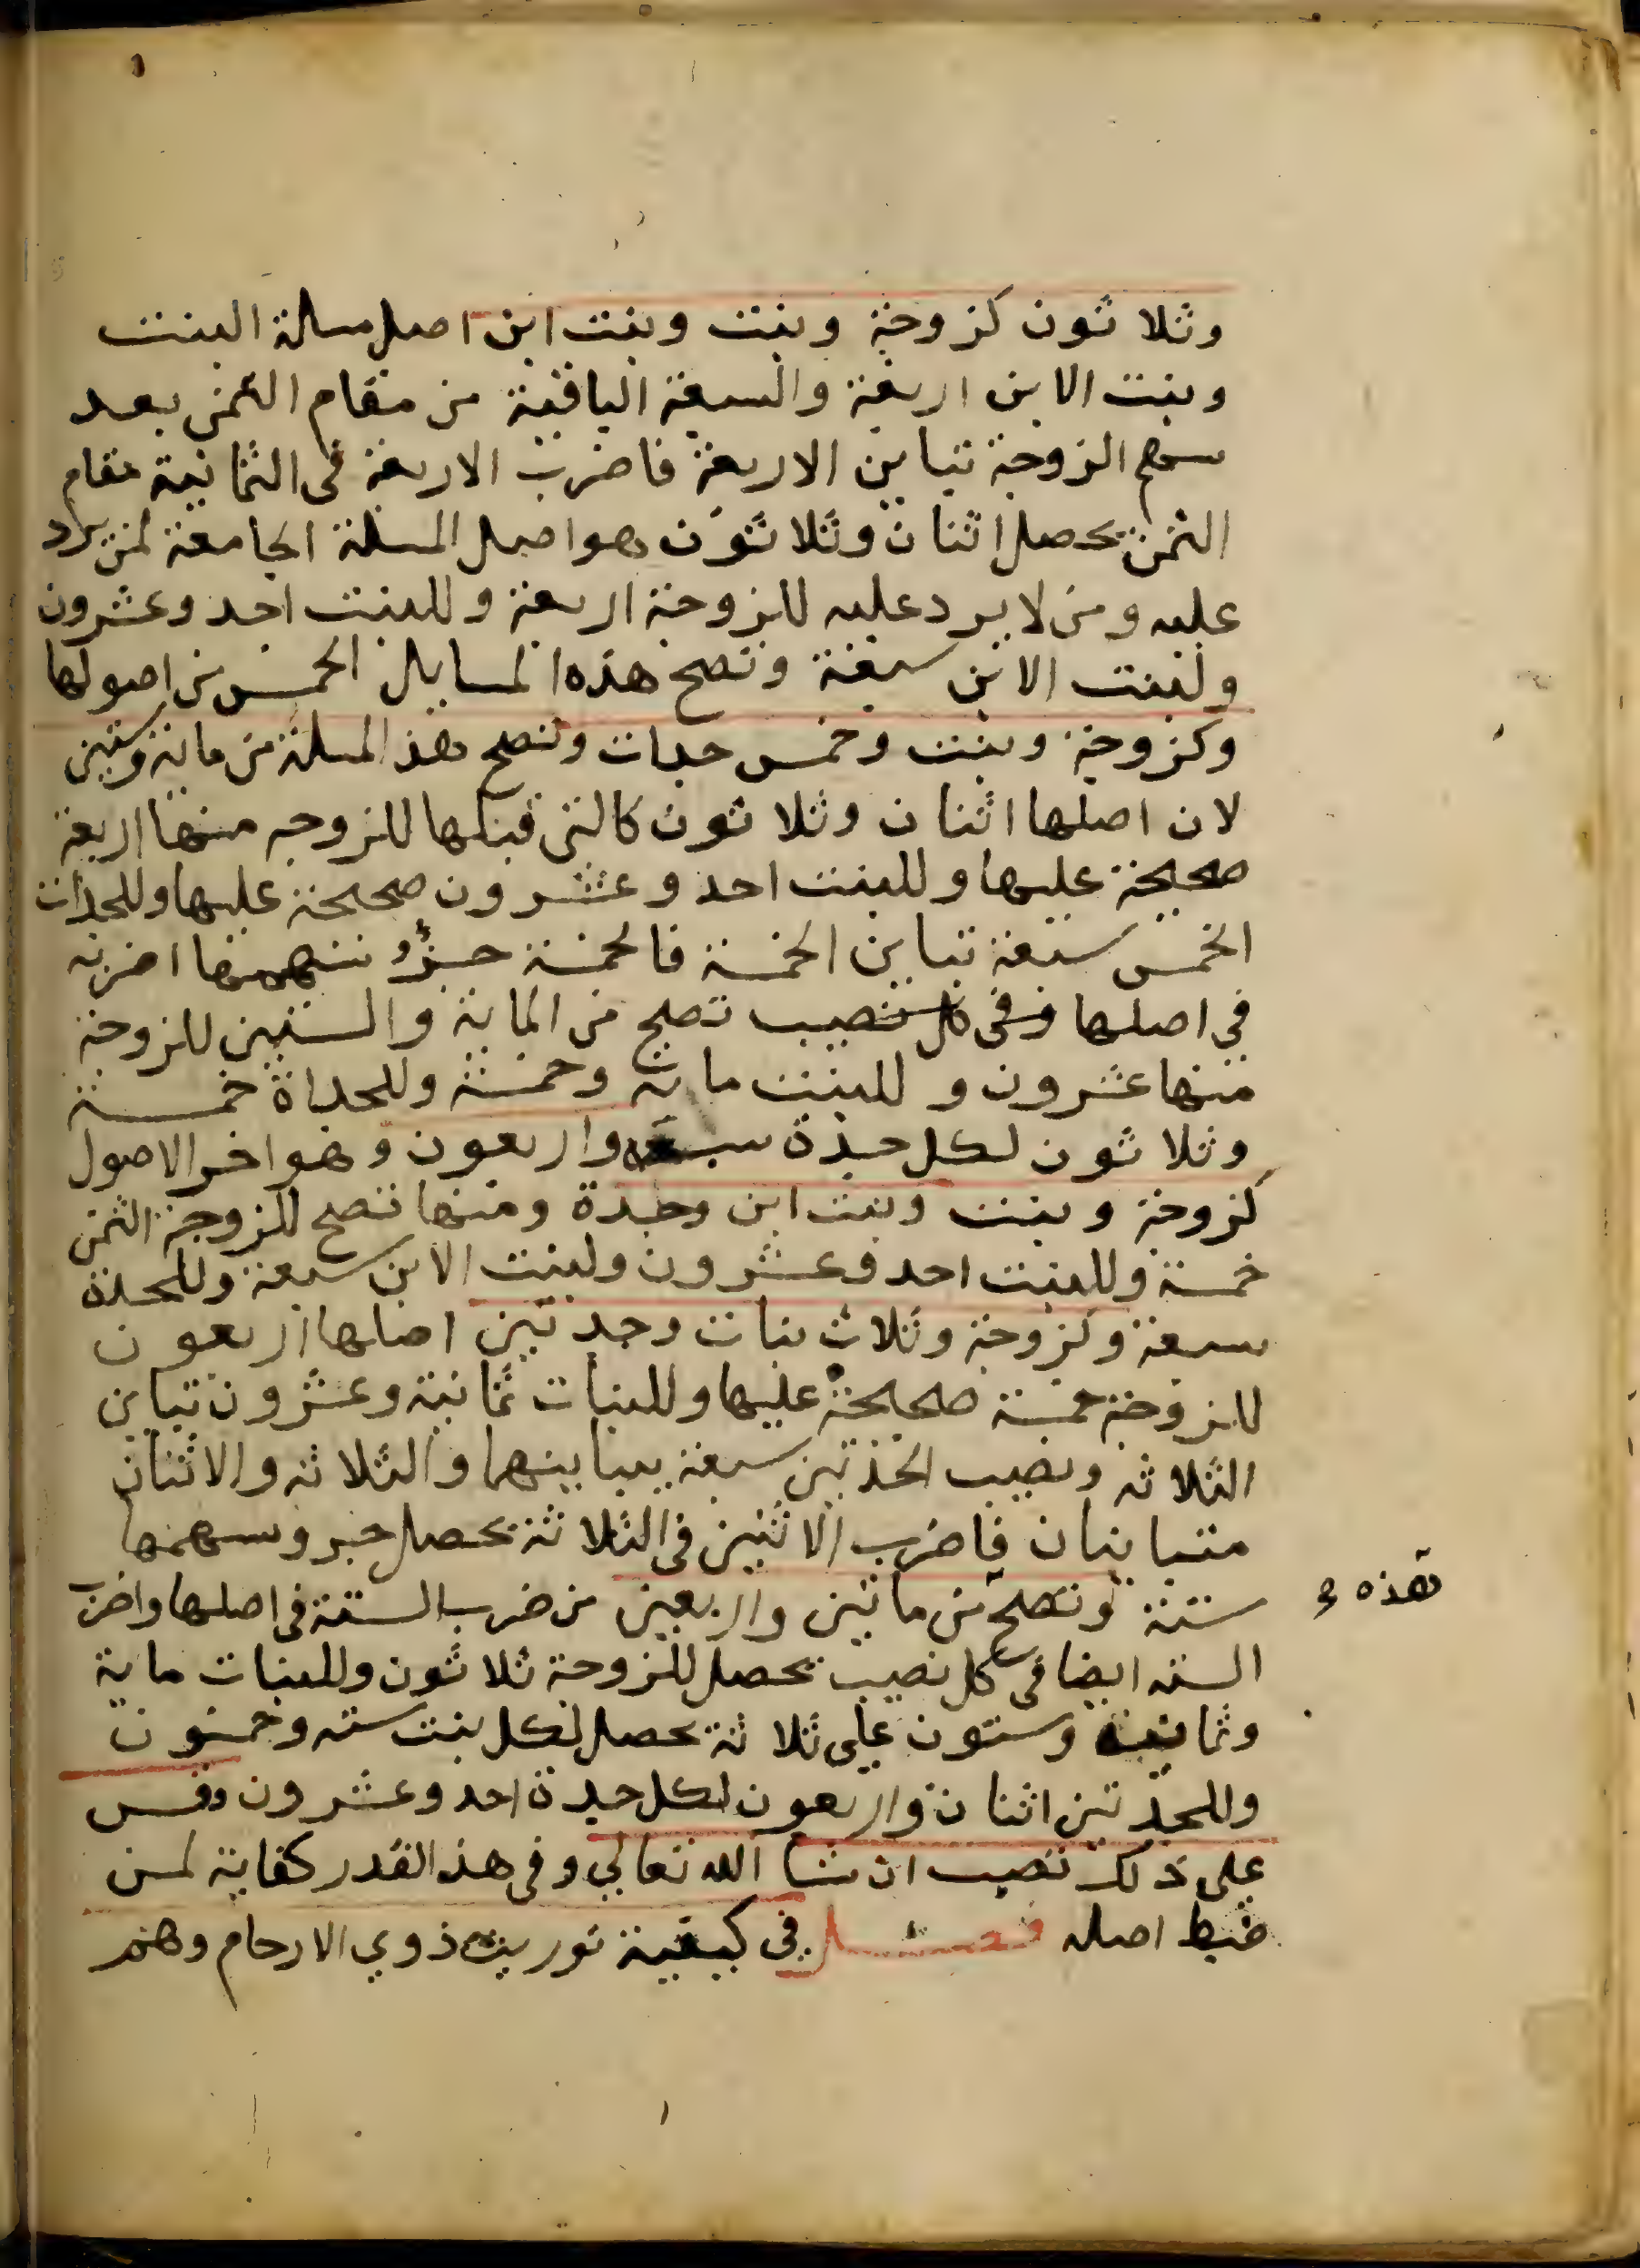 وثلاثون كزوجة وبنت وبنت ابن اصل مسالة البنت
وبنت الابن اربعة والسبعة الباقية من مقام الثمن بعد
سهم الزوجة تباين الاربعة فاضرب الاربعة في الثمانية مقام
الثمن يحصل اثنان وثلاثون هو اصل المسلة الجامعة لمن يرد
عليه ومن لا يرد عليه للزوجة اربعة وللبنت احد وعشرون
ولبنت الابن سبعة وتصح هذه المسايل الخمس من اصولها
وكزوجة وبنت وخمس جدات وتصح هذ المسلة من ماية وستين
لان اصلها اثنان وثلاثون كالتي قبلها للزوجه منها اربعة
صحيحة عليها وللبنت احد وعشرون صحيحة عليها وللجدات
الخمس سبعة تباين الخمسة فالخمسة جزؤ سهمها اضربه
في اصلها وفي كل نصيب تصح من الماية والستين للزوجة
منها عشرون وللبنت ماية وخمسة وللجداة خمسة
وثلاثون لكل جدة سبعة واربعون وهو اخر الاصول
كزوجة وبنت وبنت ابن وجدة ومنها تصح للزوجة الثمن
خمسة وللبنت احد وعشرون ولبنت الابن سبعة وللجدة
سبعة وكزوجة وثلاث بنات وجدتين اصلها اربعون
للزوجة خمسة صحيحة عليها وللبنات ثمانية وعشرون تباين
الثلاثه ونصيب الجدتين سبعة يباينهما والثلاثه والاثنان
متباينان فاضرب الاثنين في الثلاثة يحصل جزو سهمها
ستة وتصح من ماتين واربعين من ضرب الستة في اصلها واضرب
هذه
السته ايضا في كل نصيب يحصل للزوجة ثلاثون وللبنات ماية
وثمانية وستون على ثلاثة يحصل لكل بنت سته وخمسون
وللجدتين اثنان واربعون لكل جدة احد وعشرون وقس
على ذلك تصب ان شا الله تعالى وفي هذ القدر كفاية لمن
ضبط اصله فصل في كيفية توريث ذوي الارحام وهم